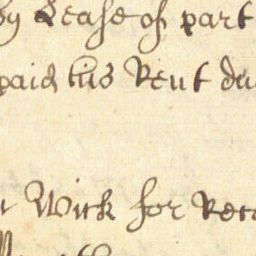 by Lease of part
paid his Rent du
Wick for Rece